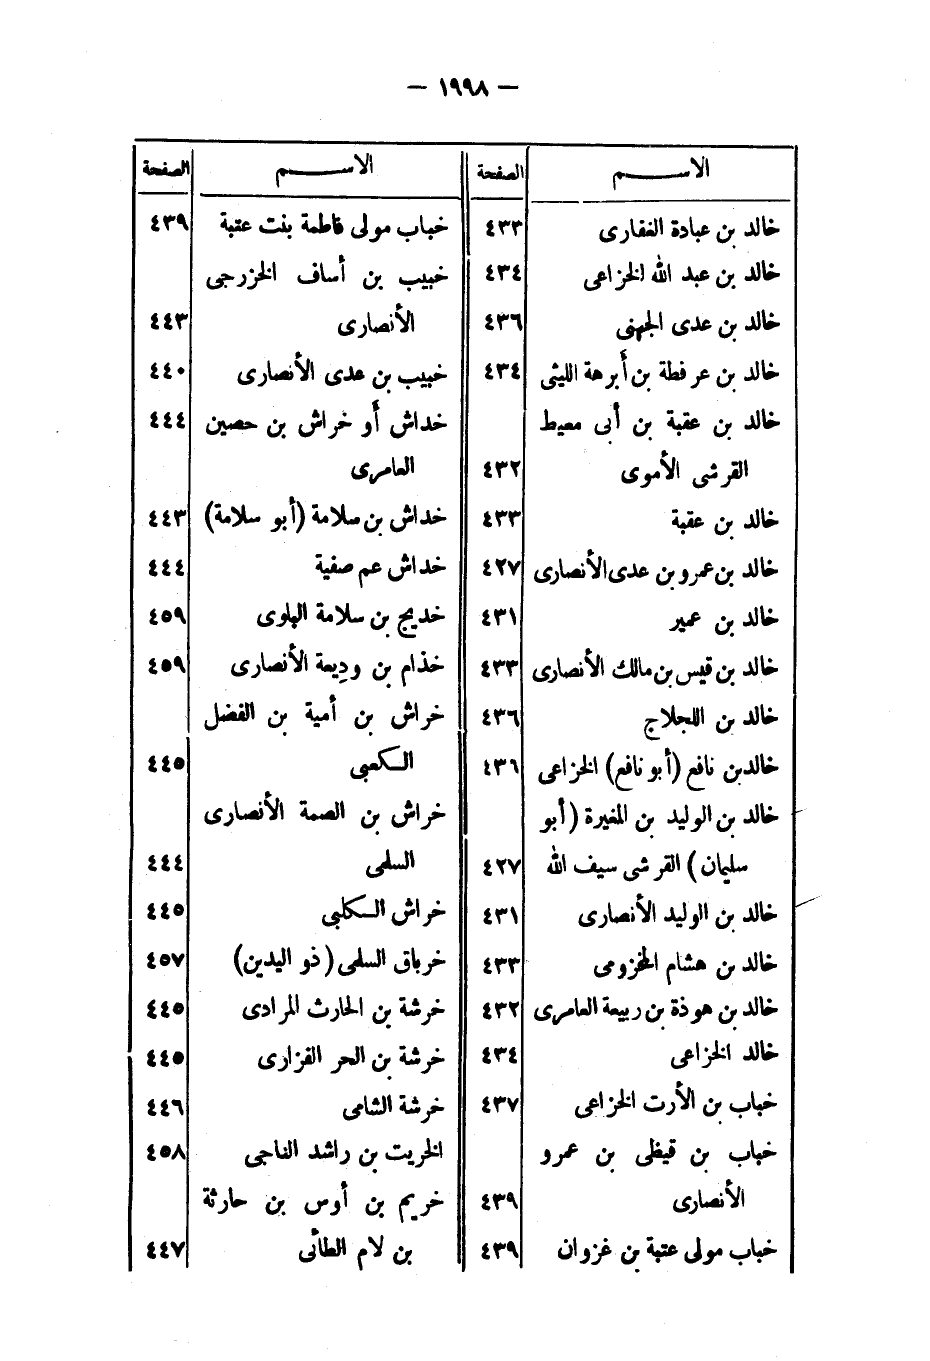 — ١٩٩٨ —
الاســـم الصفحة
خالد بن عبادة الغفارى ٤٣٣
خالد بن عبد الله الخزاعى ٤٣٤
خالد بن عدى الجهنى ٤٣٦
خالد بن عرفطة بن أبرهة الليثى ٤٣٤
خالد بن عقبة بن أبى معيط
القرشى الأموى ٤٣٢
خالد بن عقبة ٤٣٣
خالد بن عمرو بن عدى الأنصارى ٤٢٧
خالد بن عمير ٤٣١
خالد بن قيس بن مالك الأنصارى ٤٣٣
خالد بن اللجلاج ٤٣٦
خالد بن نافع (أبو نافع) الخزاعى ٤٣٦
خالد بن الوليد بن المغيرة (أبو
سليمان) القرشى سيف الله ٤٢٧
خالد بن الوليد الأنصارى ٤٣١
خالد بن هشام المخزومى ٤٣٣
خالد بن هوذة بن ربيعة العامرى ٤٣٢
خالد الخزاعى ٤٣٤
خباب بن الأرت الخزاعى ٤٣٧
خباب بن قيظى بن عمرو
الأنصارى ٤٣٩
خباب مولى عتبة بن غزوان ٤٣٩
الاســـم الصفحة
خباب مولى فاطمة بنت عتبة ٤٣٩
خبيب بن أساف الخزرجى
الأنصارى ٤٤٣
خبيب بن عدى الأنصارى ٤٤٠
خداش أو خراش بن حصين ٤٤٤
العامرى
خداش بن سلامة (أبو سلامة) ٤٤٣
خداش عم صفية ٤٤٤
خديج بن سلامة البلوى ٤٥٩
خذام بن وديعة الأنصارى ٤٥٩
خراش بن أمية بن الفضل
الكعبى ٤٤٥
خراش بن الصمة الأنصارى
السلمى ٤٤٤
خراش الكلبى ٤٤٥
خرباق السلمى (ذو اليدين) ٤٥٧
خرشة بن الحارث المرادى ٤٤٥
خرشة بن الحر الفزارى ٤٤٥
خرشة الشامى ٤٤٦
الخريت بن راشد الناجى ٤٥٨
خريم بن أوس بن حارثة
بن لام الطائى ٤٤٧